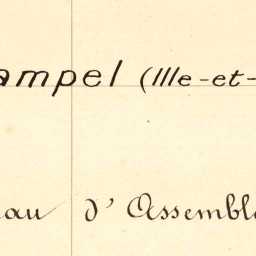 ampel (Ille-et-
au d'Assembl